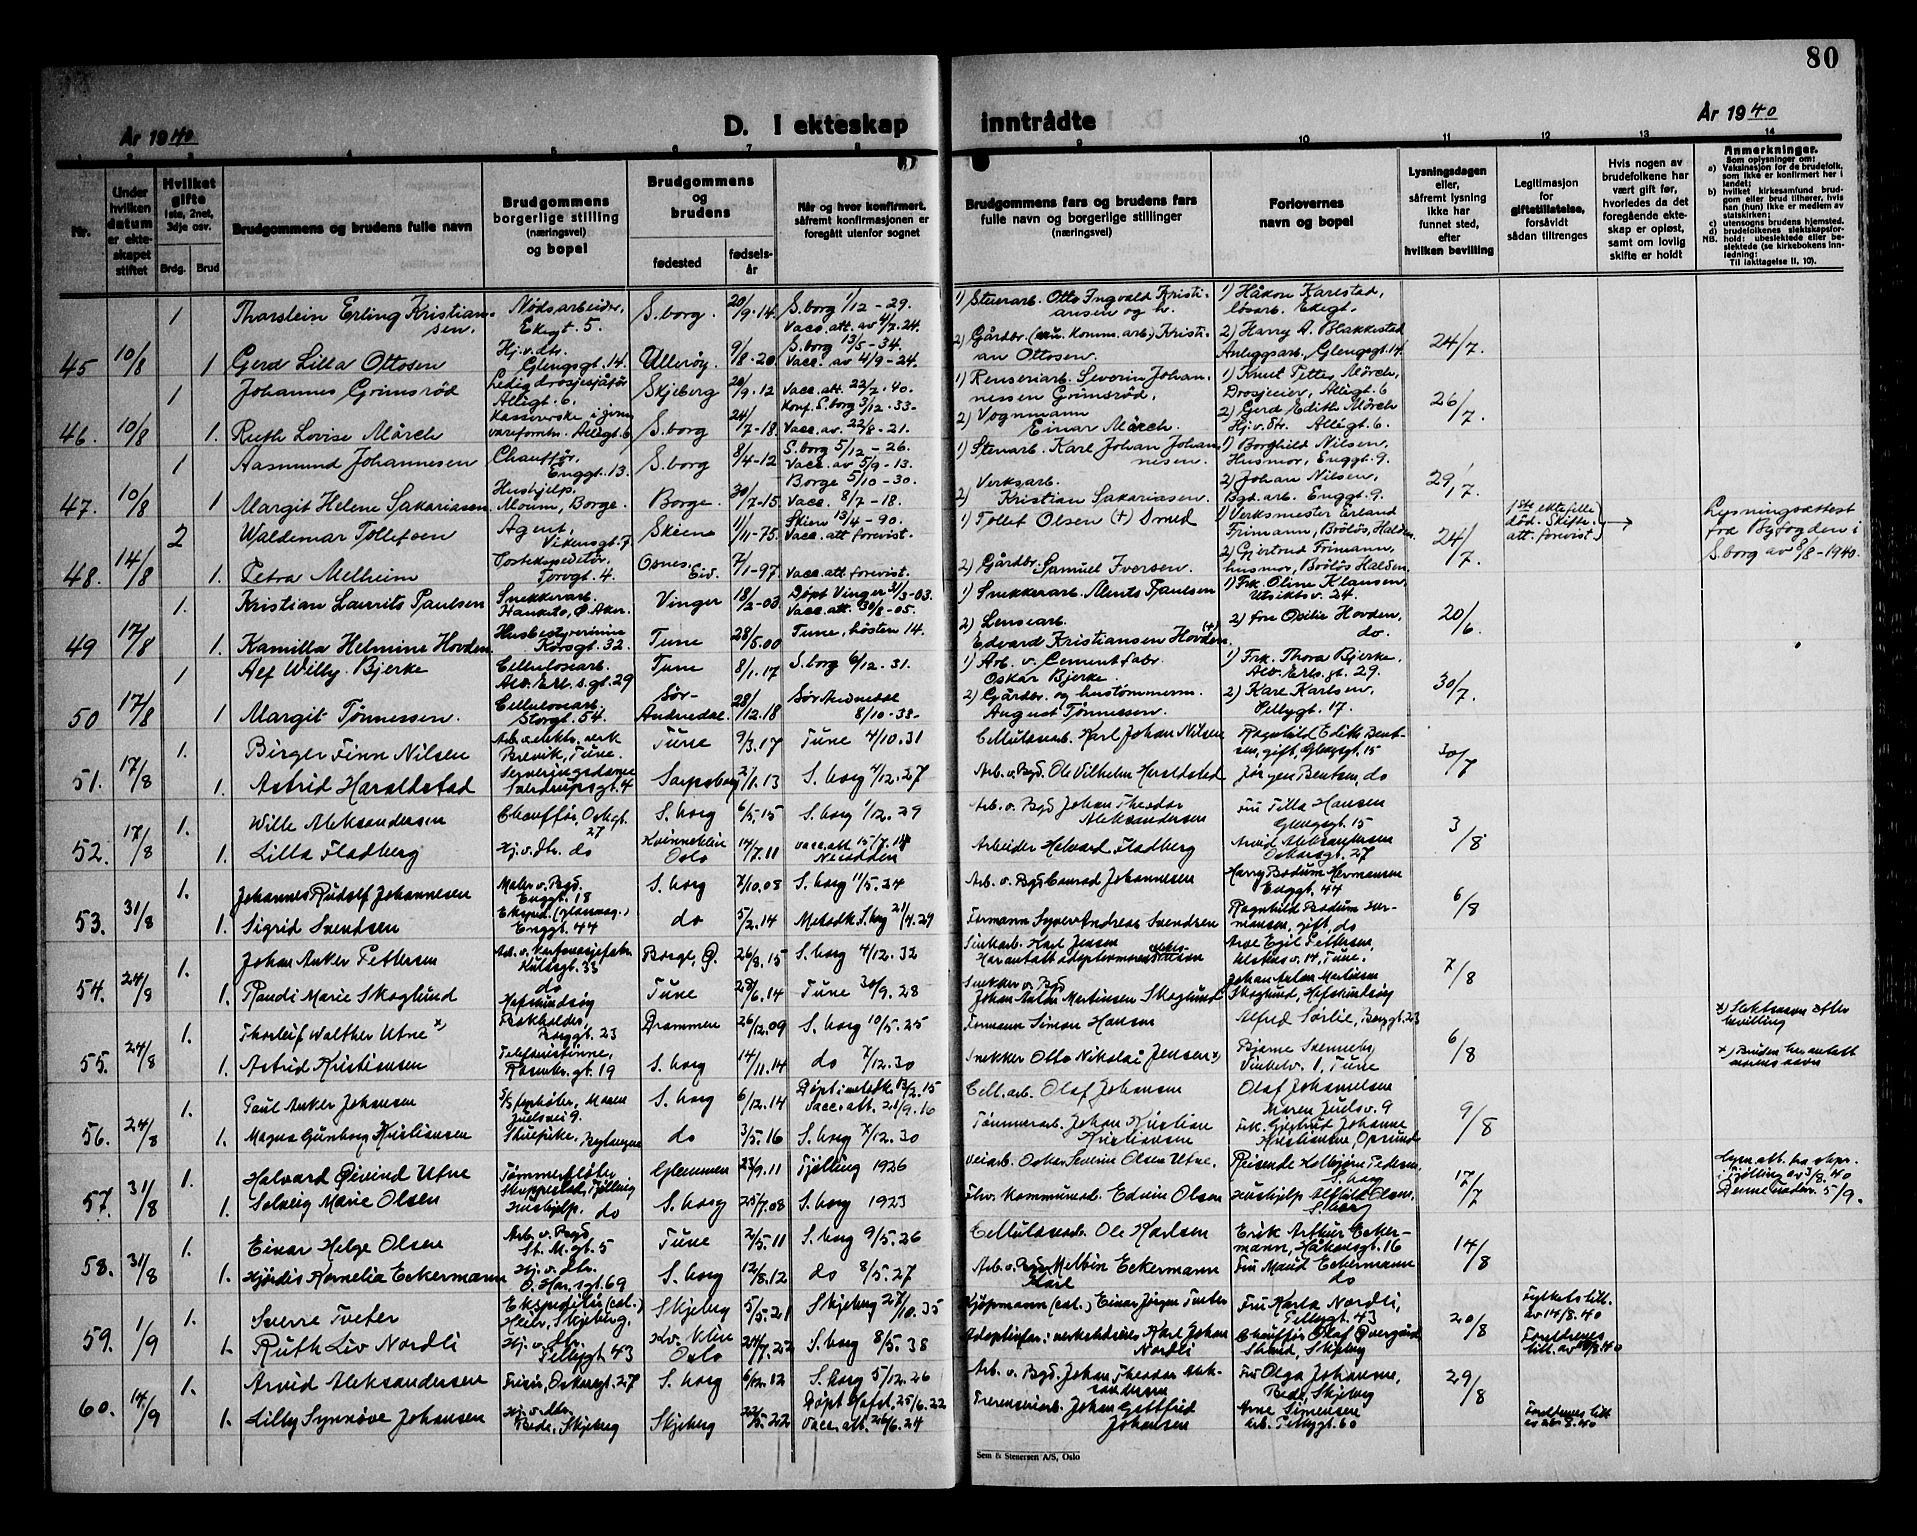 80
År 1940
D. I ekteskap inntrådte
År 1940
Nr.
Under hvilken datum er ekteskapet stiftet
Hvilket gifte 1ste, 2net, 3dje osv.
Brdg. Brud
Brudgommens og brudens fulle navn
Brudgommens borgerlige stilling (næringsvei) og bopel
Brudgommens og brudens
fødested
fødselsår
Når og hvor konfirmert, såfremt konfirmasjonen er foregått utenfor sognet
Brudgommens fars og brudens fars fulle navn og borgerlige stillinger (næringsvei)
Forlovernes navn og bopel
Lysningsdagen eller, såfremt lysning ikke har funnet sted, efter hvilken bevilling
Legitimasjon for giftetillatelse, forsåvidt sådan tiltrenges
Hvis nogen av brudefolkene har vært gift før, hvorledes da det foregående ekteskap er opløst, samt om lovlig skifte er holdt
Anmerkninger.
Som oplysninger om:
a) Vaksinasjon for de brudefolk, som ikke er konfirmert her i landet;
b) hvilket kirkesamfund brudgom eller brud tilhører, hvis han (hun) ikke er medlem av statskirken;
c) utensogns brudens hjemsted.
d) brudefolkenes slektskapsforhold: ubeslektede eller beslektede (se kirkebokens innledning:
NB. Til iakttagelse II, 10).
1 Tharslein Erling Kristiansen. Nødsarbeider, Ekegt. 5. S.borg. 20/9-14 S.borg 1/12-29. Vacc. att. av 4/7.24. 1) Stuerarb. Otto Ingvald Kristiansen og h. 1) Håkon Karlstad, løsarb. Ekegt.
45 10/8 1 Gerd Lilla Ottosen Hj.v.dtr. Glengsgt. 14. Ullerøy. 9/8-20 S.borg 13/5-34. Vacc. av 4/9-24. 2) Gårdbr. Kristian Ottosen. 2) Harry A. Blakkestad Anleggsarb., Glengsgt. 14 24/7.
1 Johannes Grimsrød Ledig drosjesjåfør Alligt. 6. Skjeberg 20/9.12 Vacc. att. 22/2.40. Konf. S.borg 3/12.33- 1) Renseriarb. Severin Johannessen Grimsrød. 1) Knut Petter Mørch, Drosjeeier, Alligt. 6
46. 10/8 1. Ruth Lovise Mørch Kassererske i jernvareforretn. Alligt. 6 S.borg 24/7-18. Vacc. av 22/8-21. 2) Vognmann Einar Mørch. 2) Gerd Edith Mørch Hj.v.dtr. Alligt. 6. 26/7.
1 Aasmund Johannesen Chauffør, Enggt. 13. S.borg 8/4-12 S.borg 5/12-26. Vacc. av 5/9-13. 1) Stenarb. Karl Johan Johannesen. 1) Borghild Nilsen, Husmor, Enggt. 9.
47. 10/8 1 Margit Helene Sakariassen Hushjelp. Moum, Borge. Borge. 30/7-15 Borge 5/10-30. Vacc. 8/7-18. 2) Verksarb. Kristian Sakariassen. 2) Johan Nilsen, Bgd. arb. Enggt. 9. 29/7.
2 Waldemar Tollefsen Agent, Vikensgt. 7 Skien 11/11-75. Skien 13/4-90. Vacc. att forevist. 1) Tollef Olsen (+) Smed 1) Verksmester Erland Frimann, Brödløs, Halden. 1ste ektefelle død. Skifteatt. forevist) Lysningsattest fra Byfogden i S.borg av 8/8-1940.
48. 14/8 1. Petra Melheim Postekspeditør, Torvgt. 4. Osnes. Eid. 7/1-97 Vacc. att forevist. 2) Gårdbr. Samuel Iversen. 2) Gjertrud Frimann, husmor, Brödløs Halden. 24/7.
1. Kristian Laurits Paulsen Snekkerarb. Vinger 18/2-03 Døpt Vinger 31/3-03. Vacc. att. 30/8-05. 1) Snekkerarb. Ments Paulsen 1) Frk. Oline Klausen, Utsiktsv. 24.
49 17/8 1. Kamilla Helmine Hovden Husbestyrerinne Korsgt. 32. Tune 28/5.00 Tune, høsten 14. 2) Lensearb. Edvard Kristiansen Hovden. (+) 2) fru Osilie Hovden, do. 20/6
1 Alf Willy Bjerke Cellulosearb. Alv. Erl. s.gt. 29 Tune 8/1.17 S.borg 6/12.31. 1) Arb. v. Cementfabr. Oskar Bjerke. 1) Frk. Thora Bjerke. Alv. Erls. gt. 29.
50 17/8 1 Margit Tønnessen. Cellulosearb. Storgt. 54. Sør-Audnedal 28/12.18 Sør Audnedal 8/10-33- 2) Gårdbr. og hustømmerm. August Tønnessen. 2) Kare Karlsen, 17. 30/7.
1. Birger Finn Nilsen Arb. v elektr. verk Brevik, Tune. Tune 9/3.17 Tune 4/10.31 Cellulosearb. Karl Johan Nilsen Ragnhild Edith Bentsen, gift, Glengsgt. 15
51. 17/8 1. Astrid Haraldstad Sarpsborg 2/1.13 S. borg 4/12.27 Arb. v. Bgd. Ole Vilhelm Haraldstad Jørgen Bentsen, do 30/7
1. Wille Aleksandersen Chauffør, Osk.gt. 27 S. borg 6/5.15 S. borg 1/12.29 Arb. v. Bgd Johan Theodor Aleksandersen Fru Tilla Hansen Glengsgt. 15
52. 17/8 1. Lilla Fladberg Hj.v.dtr. do Kvinneklin Oslo 14/7.11 vacc. att 15/7.14 Arbeider Halvard Fladberg Arvid Aleksandersen Oskarsgt. 27 3/8
1. Johannes Rudolf Johannesen Maler v. Bgd. Enggt. 18 S. borg 7/10.08 S. borg 11/5.24 Arb. v. Bgd Conrad Johannesen Harry Bodum Hermansen Enggt. 44
53. 31/8 1. Sigrid Svendsen Eksped. (glassmag.) Enggt. 44 do 5/2.14 Metodk. S.borg 21/4.29 Formann Syver Andreas Svendsen Ragnhild Bodum Hermansen, gift, do 6/8
1. Johan Anker Pettersen Borge, Ø. 26/3.15 S. borg 4/12.32 Sinkarb. Karl Jensen Arve Egil Pettersen, v. 14, Tune.
54. 24/8 1. Randi Marie Skoglund do Hafslundsøy Tune 28/6.14 Tune 30/9.28 Snekker v. Bgd Johan Anton Martinsen Skoglund Johan Anton Martinsen Skoglund, Hafslundsøy 7/8
1. Thorleif Walther Utne x) Bokholder, Borggt. 23 Drammen 26/12.09 S. borg 10/5.25 Formann Simon Hansen Alfred Sørlie, Borggt. 23
55. 24/8 1. Astrid Kristiansen Telefonistinne, Rosenkr. gt. 19 S. borg 14/11.14 do 7/12.30 Snekker Otto Nikolai Jensen x) Bjarne Svenneby, Vinkelv. 1, Tune 6/8 x) Slektsnavn efter bevilling x) Bruden har antatt navn
1. Paul Anker Johansen Maren Juelsvei 9. S. borg 6/12.14 Døpt i metodk. 13/2.15 Vacc. att. 21/9.16 Cell. arb. Olaf Johansen Olaf Johannesen Maren Juels v. 9
56. 24/8 1. Magna Gunborg Kristiansen do 3/5.16 S. borg 7/12.30 Tømmerarb. Johan Kristian Kristiansen Frk. Gjertrud Johanne Kristiansen, Opsund 9/8
1. Halvard Øivind Utne Tømmerfløter, Skoppestad, Tjølling Glemmen 23/9.11 Tjølling 1926 Veiarb. Oskar Severin Olsen Utne. Reisende Kolbjørn Pedersen, S. borg
57. 31/8 1. Solveig Marie Olsen Hushjelp. do S. borg 25/7.08 S. borg 1923 Fhv. Kommunearb. Edvin Olsen Hushjelp Alfhild Olsen, S. borg 17/7 Lysn. att. fra sogpr. i Tjølling av 3/8.40 5/9.
1. Einar Helge Olsen Arb. v. Bgd St. M. gt. 5 Tune 2/5.11 S. borg 9/5.26 Cellulosearb. Ole Karlsen Erik Arthur Eckermann, Håkonsgt. 16
58. 31/8 1. Hjørdis Kornelia Eckermann Hj. v. dtr. O. Har. s.gt. 69 S. borg 12/8.12 do 8/5.27 Arb. v. Bgd Karl Melvin Eckermann Fru Maud Eckermann do 14/8
1. Sverre Tveter Ekspeditør (col.) Skjeberg. Skjeberg 5/5.21 Skjeberg 27/10.35 Kjøpmann (col.) Einar Jørgen Tveter Fru Karla Nordli, Pellygt. 43 Fylketstill. av 14/8.40
59. 1/9 1. Ruth Liv Nordli Hj. v. dtr. Pellygt 43 Kv. klin Oslo 24/7.22 S. borg 8/5.38 Adoptivfar: Karl Johan Nordli Chauffør Olaf Overgaard Skjeberg 20/8 Foreldrenes till. av
1. Arvid Aleksandersen Frisør, Oskarsgt. 27 S. borg 6/12.12 S. borg 5/12.26 Arb. v. Bgd. Johan Theodor Aleksandersen Fru Olga Johansen, Bede, Skjeberg
60. 14/9 1. Lilly Synnøve Johansen Hj. v. dtr. Bede, Skjeberg Skjeberg 22/5.22 Døpt Hafsl. 25/6.22 Vacc. att. 26/6.24 Johan Gottfrid Johansen Arne Simensen arb. Pellygt. 60 29/8 Foreldrenes till.
Sem & Stenersen A/S, Oslo